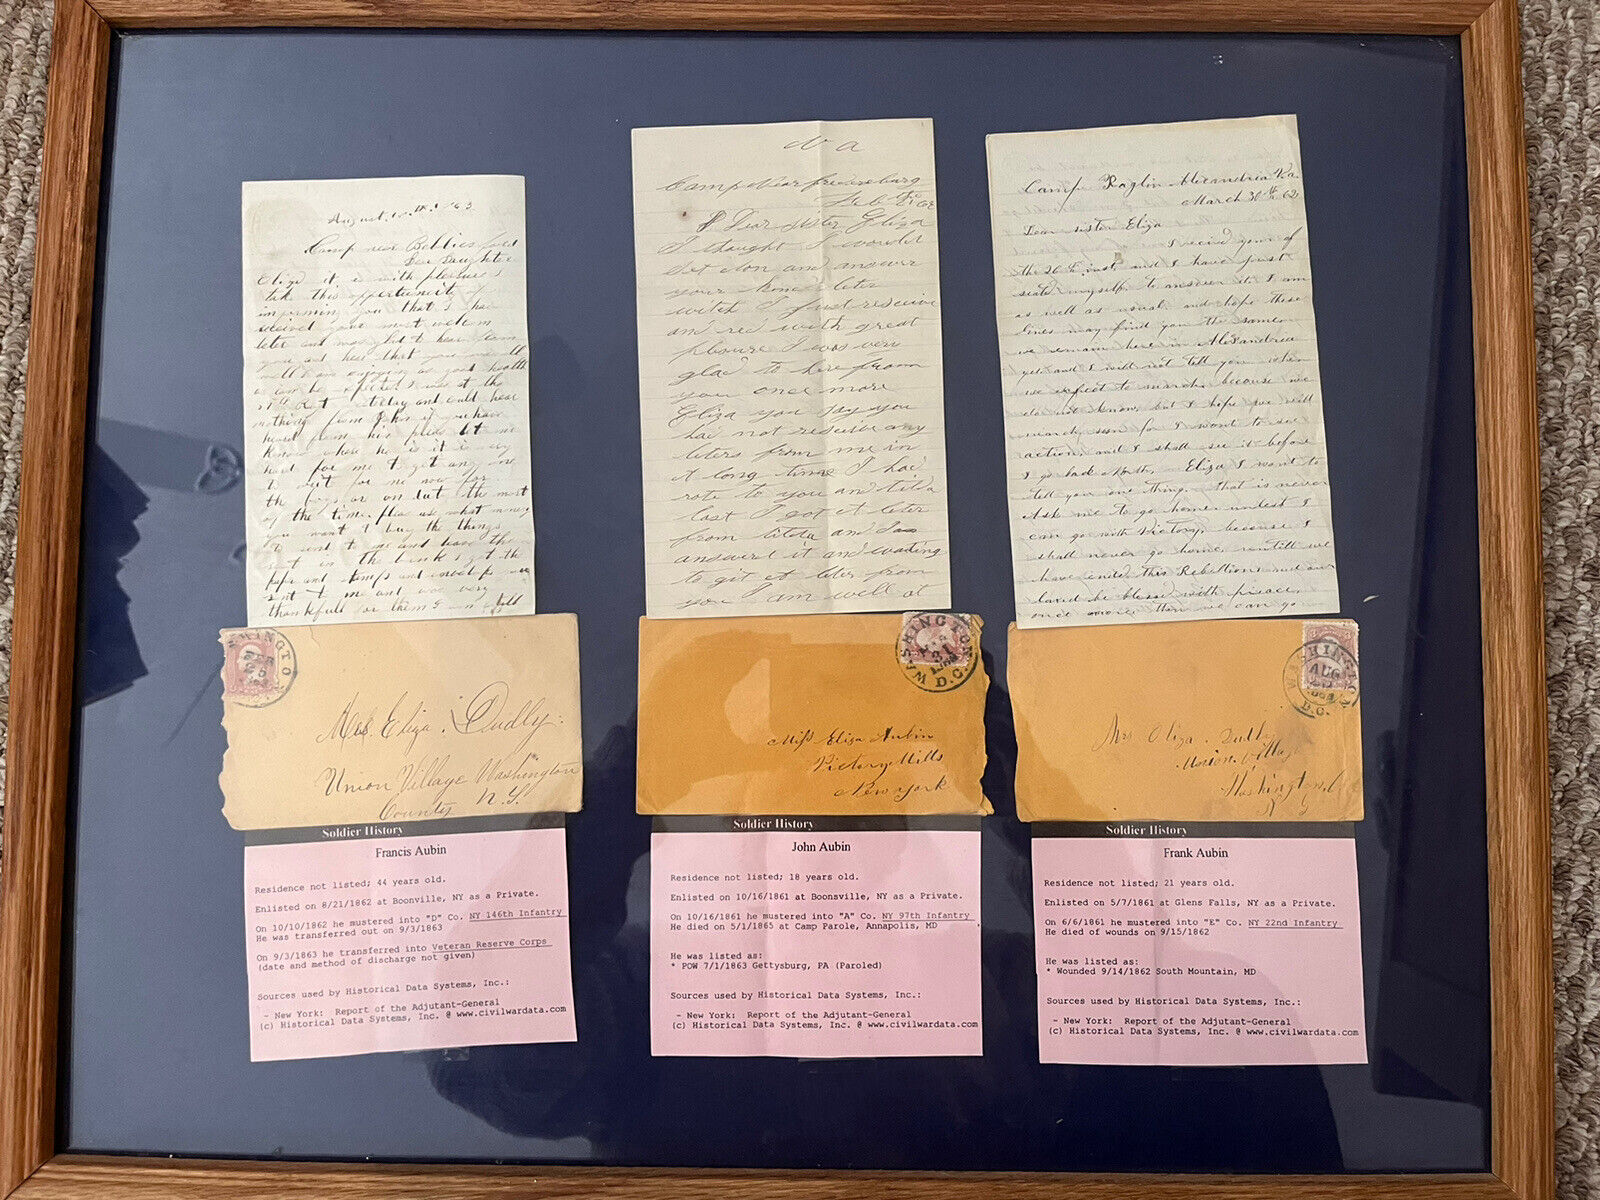 August 1863
Camp near
Dear Daughter
Eliza it is with pleasure I
take this opportunity
informing you that I have
received your most welcom
leter and was glad to hear from
you and hear that you
health
nothing from John if you have
heard from him pleas let me
know where he is it is very
hard for me to get any one
to rit for me now for
the boys ar on the most
of the time. pleas what money
you want to buy the things
sent to me and have the
rest in the bank I got the
paper and stamps and
sent me and was very
thankfull for them
Va
Camp Near
Feb
Dear Sister Eliza
I thought I woulde
Set down and answer
your kind leter
witch I just resceive
and red with great
plesure I was very
glad to here from
you once more
Eliza you say you
hav not resceive any
leters from me in
A long time I hav
rote to you and
last I got A leter
from and
answerd it and wating
to git A leter from
you I am well at
Camp Alexandria Va.
March 30th 62
Dear sister Eliza
I recived yours of
the 26th inst, and I have just
seated myself to answer it. I am
as well as usual. and hope these
lines may find you the same
we remain here in Alexandria
yet and I will not tell you when
we expect to march, because we
do not know, but I hope we will
march soon for I want to see
action, and I shall see it before
I go back North. Eliza I want to
tell you one thing. that is never
Ask me to go home, unlest I
can go with Victory, because I
shall never go home, untill we
have ended this Rebellion and our
land be blessed with piece,
once more, then we can go
WASHINGTO
FEB
25
Mrs. Eliza Dudly:
Union Village Washington
County N.Y.
WASHINGTON
31
D.C.
Miss Eliza Aubin
Victory Mills
New york
WASHINGTON
AUG
D.C.
Mrs Eliza. Dudly
Union Village
Washington
N Y
Soldier History
Francis Aubin
Residence not listed; 44 years old.
Enlisted on 8/21/1862 at Boonville, NY as a Private.
On 10/10/1862 he mustered into "D" Co. NY 146th Infantry
He was transferred out on 9/3/1863
On 9/3/1863 he transferred into Veteran Reserve Corps
(date and method of discharge not given)
Sources used by Historical Data Systems, Inc.:
- New York: Report of the Adjutant-General
(c) Historical Data Systems, Inc. @ www.civilwardata.com
Soldier History
John Aubin
Residence not listed; 18 years old.
Enlisted on 10/16/1861 at Boonsville, NY as a Private.
On 10/16/1861 he mustered into "A" Co. NY 97th Infantry
He died on 5/1/1865 at Camp Parole, Annapolis, MD
He was listed as:
* POW 7/1/1863 Gettysburg, PA (Paroled)
Sources used by Historical Data Systems, Inc.:
- New York: Report of the Adjutant-General
(c) Historical Data Systems, Inc. @ www.civilwardata.com
Soldier History
Frank Aubin
Residence not listed; 21 years old.
Enlisted on 5/7/1861 at Glens Falls, NY as a Private.
On 6/6/1861 he mustered into "E" Co. NY 22nd Infantry
He died of wounds on 9/15/1862
He was listed as:
* Wounded 9/14/1862 South Mountain, MD
Sources used by Historical Data Systems, Inc.:
- New York: Report of the Adjutant-General
(c) Historical Data Systems, Inc. @ www.civilwardata.com